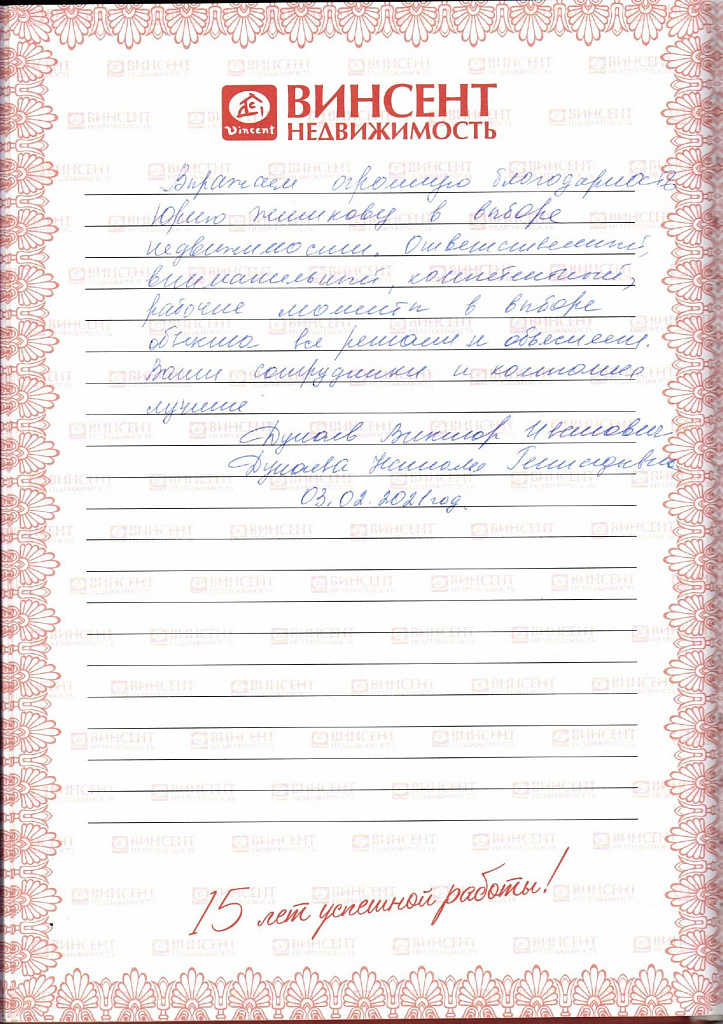 Vincent
ВИНСЕНТ
НЕДВИЖИМОСТЬ
Выражаем огромную благодарность
Юрию в выборе
недвижимости. Ответственный,
внимательный, компетентный,
рабочие моменты в выборе
объекта все решали и объясняли.
Ваши сотрудники и компания
лучшие
Дунаев Виктор Иванович
Дунаева Наталья Геннадьевна
03.02.2021 год.
15 лет успешной работы!